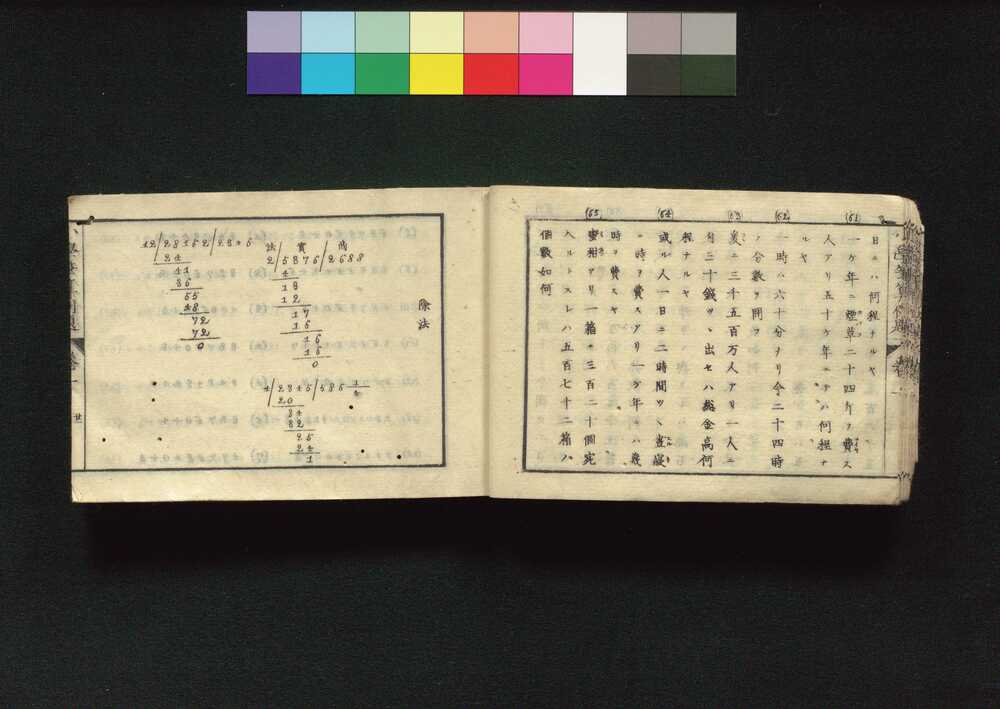 日ニハ何程ナルヤ
(61)
一ケ年ニ煙草二十四斤ヲ費ス
人アリ五十ケ年ニテハ何程ナ
ルヤ
(62)
一時ハ六十分ナリ今二十四時
ノ分數ヲ問フ
(63)
爰ニ三千五百万人アリ一人ニ
付三十錢ツヽ出セハ総金高何
程ナルヤ
(64)
或ル人一日ニ二時間ツヽ晝寢
ニ時ヲ費スアリ一ケ年ニハ幾
時ヲ費スヤ
(65)
蜜柑アリ一箱ニ三百二十個宛
入ルトスレハ五百七十二箱ハ
個數如何
除法
法 實 商
2/5376/2688
4
13
12
17
16
16
16
0
4/2345/586 1/4
20
34
32
25
24
1
12/28152/2346
24
41
36
55
48
72
72
0